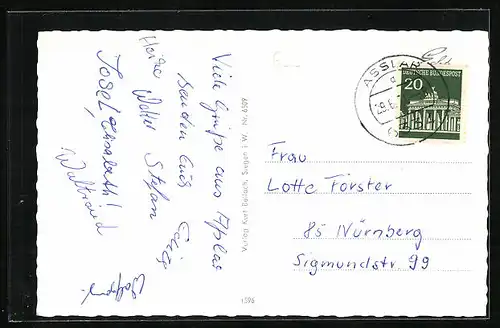 Viele Grüße aus Aßlar
senden Euch
Heike Walter Stefan
Josef, Elisabeth!
Waltraud
Verlag Kurt Bellach, Singen i. W.
ASSLAR
DEUTSCHE BUNDESPOST
20
Frau
Lotte Förster
85 Nürnberg
Sigmundstr 99
1396